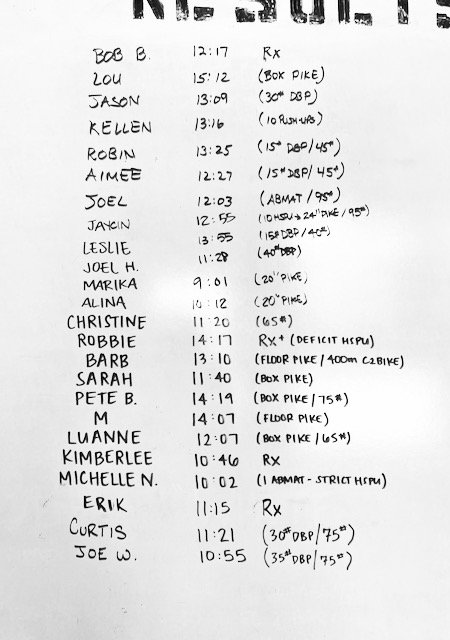 RESULTS
BOB B. 12:17 Rx
LOU 15:12 (BOX PIKE)
JASON 13:09 (30# DBP)
KELLEN 13:16 (10 PUSH-UPS)
ROBIN 13:25 (15# DBP/45#)
AIMEE 12:27 (15# DBP/45#)
JOEL 12:03 (ABMAT/95#)
JAYCIN 12:55 (10 HSPU + 24" PIKE/95#)
LESLIE 13:55 (15# DBP/40#)
JOEL H. 11:28 (40# DBP)
MARIKA 9:01 (20" PIKE)
ALINA 10:12 (20" PIKE)
CHRISTINE 11:20 (65#)
ROBBIE 14:17 Rx+ (DEFICIT HSPU)
BARB 13:10 (FLOOR PIKE/400m C2BIKE)
SARAH 11:40 (BOX PIKE)
PETE B. 14:19 (BOX PIKE/75#)
M 14:07 (FLOOR PIKE)
LUANNE 12:07 (BOX PIKE/65#)
KIMBERLEE 10:46 Rx
MICHELLE N. 10:02 (1 ABMAT - STRICT HSPU)
ERIK 11:15 Rx
CURTIS 11:21 (30# DBP/75#)
JOE W. 10:55 (35# DBP/75#)